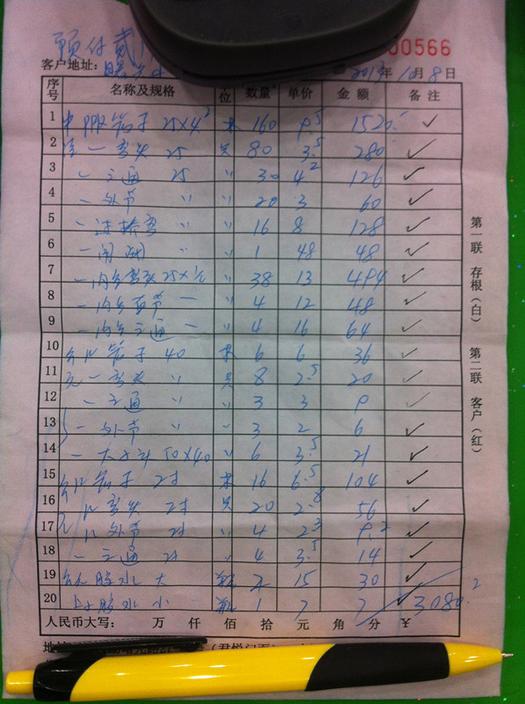 预付贰
00566
客户地址: 2013年10月8日
序号 名称及规格 位 数量 单价 金额 备注
1 管子 25×4.2 160 9.5 1520 ✓
2 一弯头 25 只 80 3.5 280 ✓
3 一三通 25 〃 30 4.2 126 ✓
4 一外节 〃 〃 20 3 60 ✓
5 一过桥弯 〃 〃 16 8 128 ✓
6 一闸阀 〃 〃 1 48 48 ✓
7 一内牙弯头 25×1/2 〃 38 13 494 ✓
8 一内牙直节 一 〃 4 12 48 ✓
9 一内牙三通 一 〃 4 16 64 ✓
10 管子 40 6 6 36 ✓
11 一弯头 〃 只 8 2.5 20 ✓
12 一三通 〃 〃 3 3 9 ✓
13 一外节 〃 〃 3 2 6 ✓
14 一大小头 50×40 〃 6 3.5 21 ✓
15 管子 2寸 16 6.5 104 ✓
16 弯头 2寸 只 20 2.8 56 ✓
17 外节 2寸 〃 4 2.3 9.2 ✓
18 一三通 2寸 〃 4 3.5 14 ✓
19 胶水 大 2 15 30 ✓
20 胶水 小 1 7 7 ✓ 3080.2
人民币大写: 万 仟 佰 拾 元 角 分 ¥
第一联 存根(白) 第二联 客户(红)